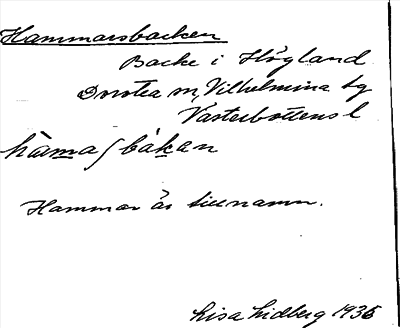 Hammarsbacken
Backe i Högland
Dorotea sn, Vilhelmina tg
Västerbottens l
hàmaʃbàkan
Hammar är tillnamn.
Lisa Lidberg 1935